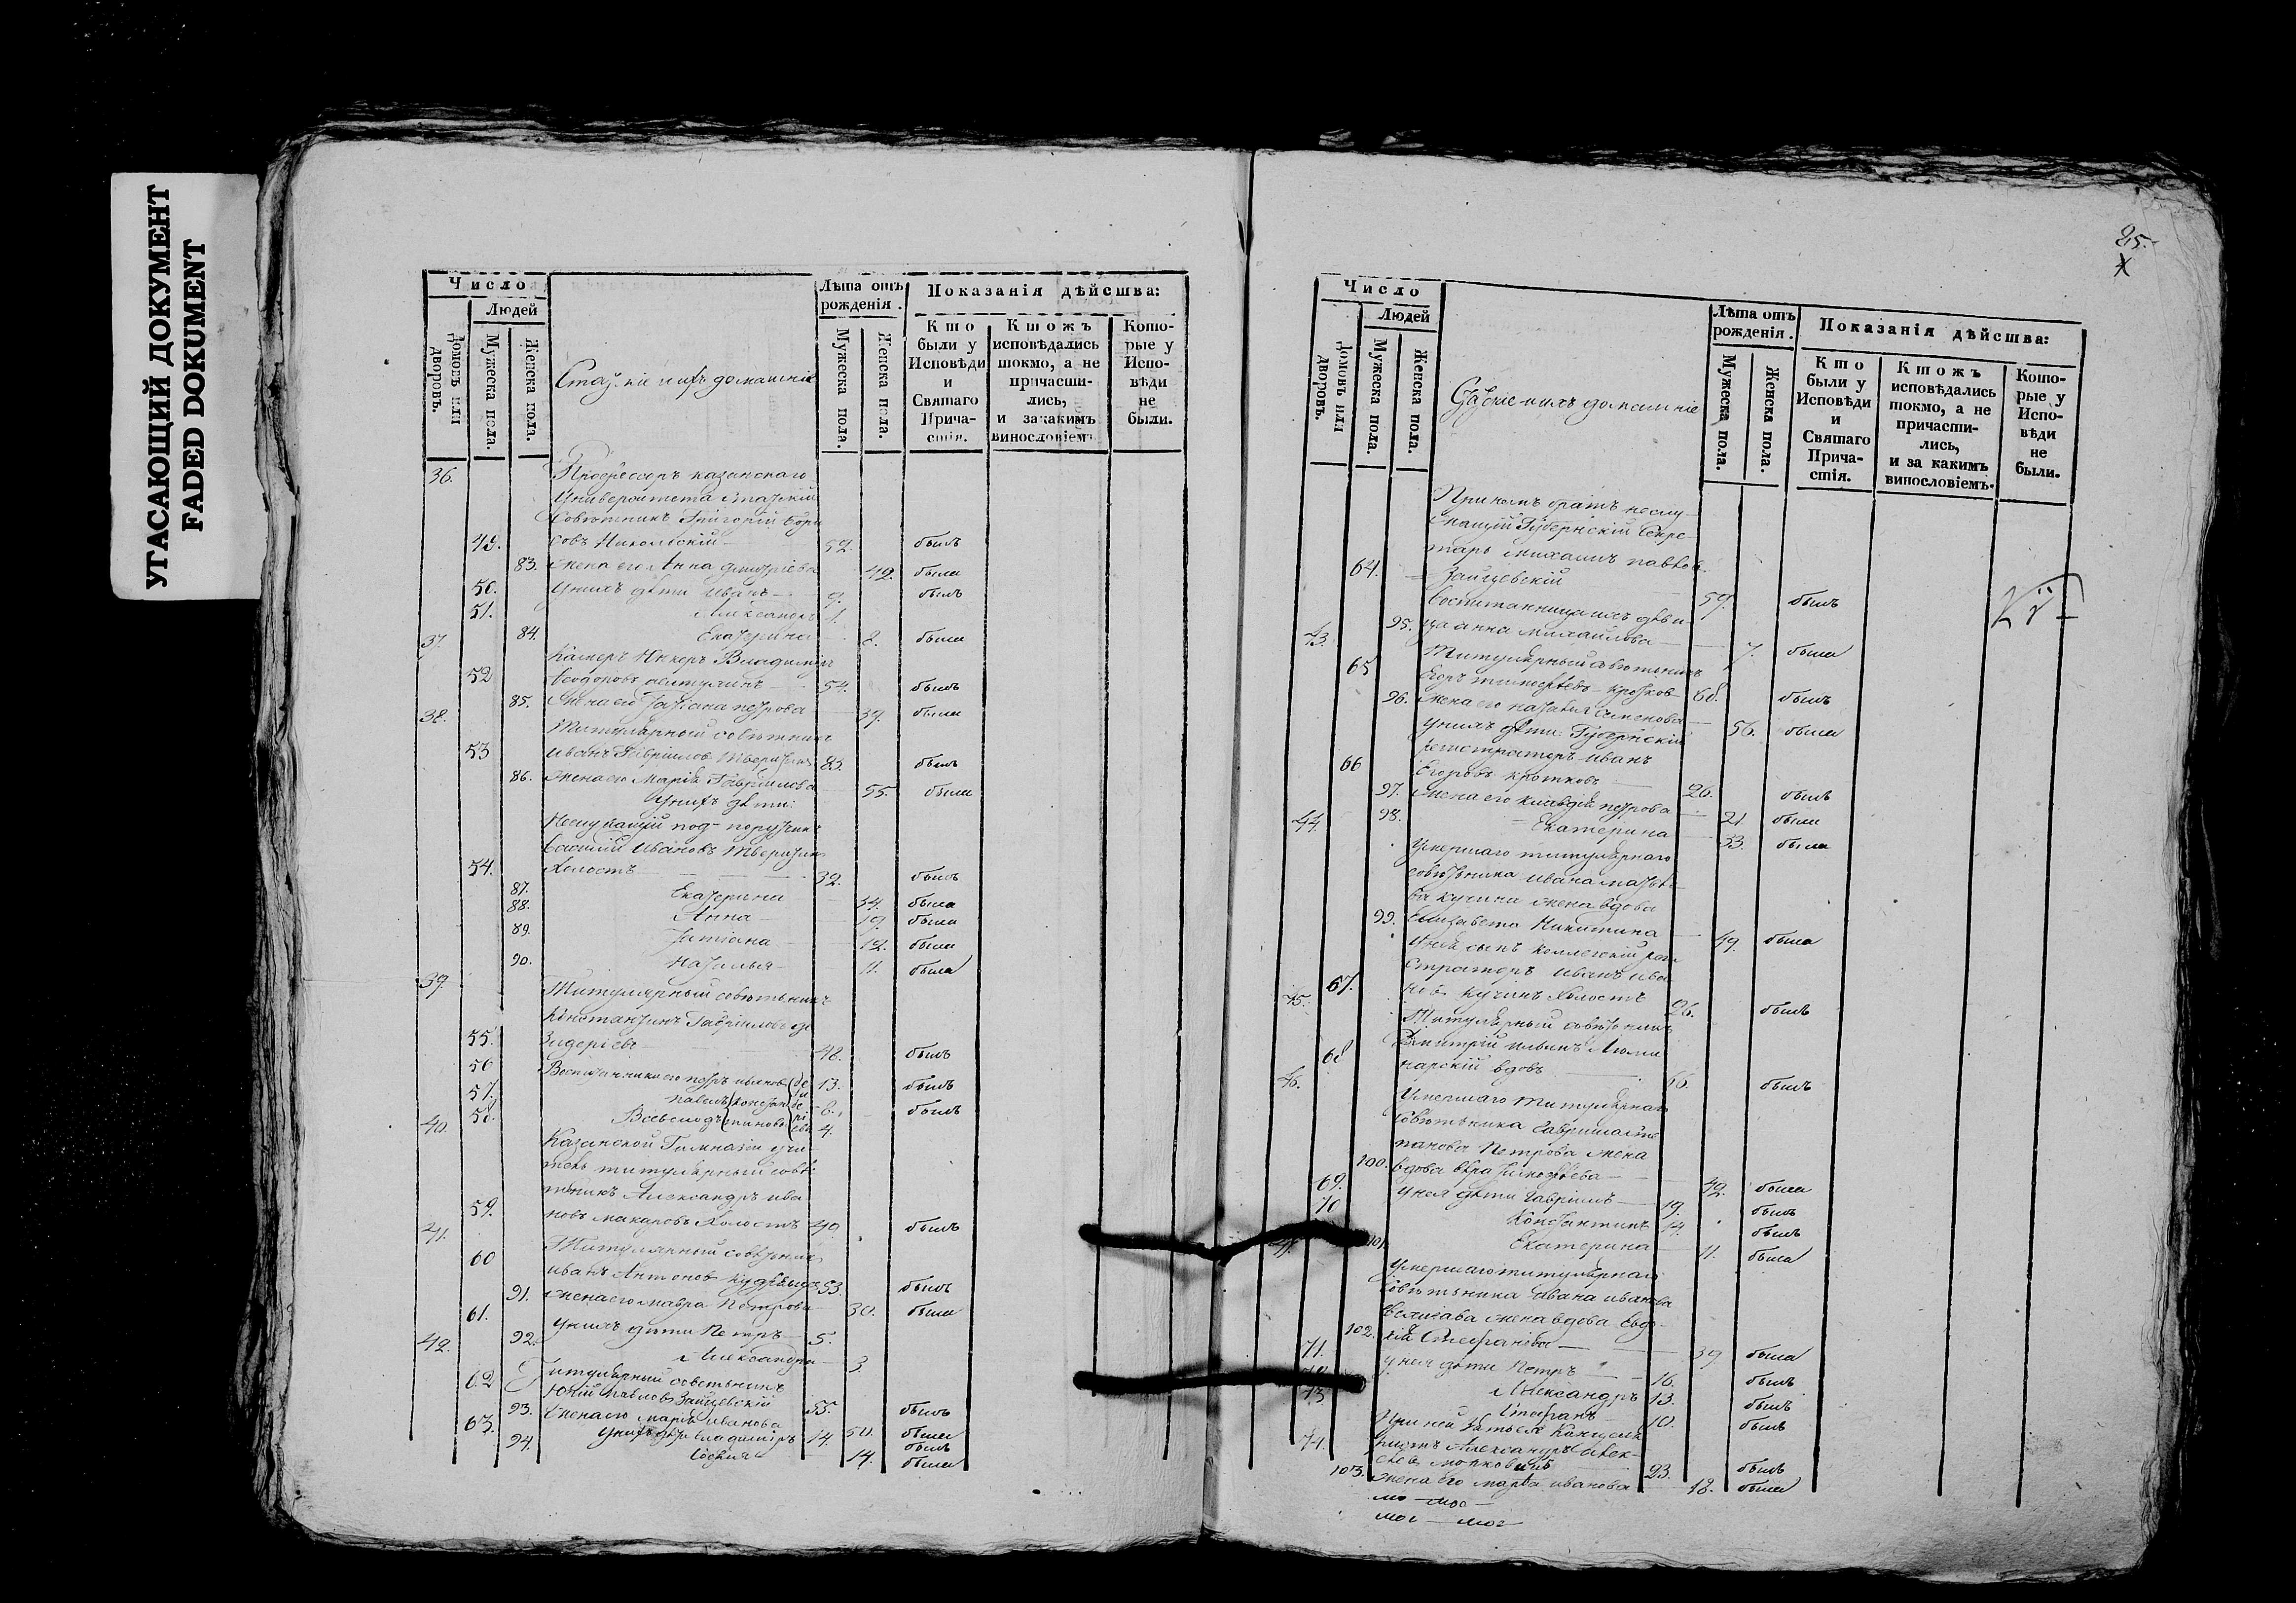 УГАСАЮЩИЙ ДОКУМЕНТ
FADED DOKUMENT
Число
Людей
Домовъ или дворовъ.
Мужеска пола.
Женска пола.
Статскіе и ихъ домашніе
Лѣта отъ рожденія.
Мужеска пола.
Женска пола.
Показанія дѣйства:
Кто были у Исповѣди и Святаго Прича-стія.
Ктожъ исповѣдались токмо, а не причасти-лись, и за какимъ винословіемъ
Кото-рые у Испо-вѣди не были.
36. Профессоръ казанскаго
Университета статскій
Совѣтникъ Григорій Бори
49. совъ Никольскій 52. былъ
83. жена его Анна Дмитріева 42. была
50. у нихъ дѣти Иванъ 9. былъ
51. Александръ 1.
84. Екатерина 8. была
37. Камеръ Юнкеръ Владиміръ
52 54. былъ
85. Жена его Татіана петрова 39. была
38. Титулярный совѣтникъ
53 Иванъ Гавриловъ 83. былъ
86. жена его Марія Гаврилова 55. была
у нихъ дѣти:
Неслужащій под-порутчикъ
Василій Ивановъ
54. Холостъ 32. былъ
87. Екатерина 34. была
88. Анна 19. была
89. Татіана 12. была
90. Наталья 11. была
39. Титулярный совѣтникъ
Константинъ Гавриловъ
55. 48. былъ
56 Воспитанники его петръ ивановъ 13. былъ
57. павелъ 6. былъ
58. Всеволодъ 4.
40. Казанской Гимназіи учи
тель титулярный совѣ
тникъ Александръ ива
59. новъ макаровъ Холостъ 40. былъ
41. Титулярный совѣтникъ
60 иванъ Антоновъ 53. былъ
91. жена его мавра Петрова 30. была
61. у нихъ дѣти Петръ 5.
92. Александра 3
42. Титулярный совѣтникъ
62 Павловъ Зайцевскій 55. былъ
93. Жена его марія Иванова 50. была
63. у нихъ дѣти владиміръ 14. былъ
94. Софія 14. была
25.
Число
Людей
Домовъ или дворовъ.
Мужеска пола.
Женска пола.
Статскіе и ихъ домашніе
Лѣта отъ рожденія.
Мужеска пола.
Женска пола.
Показанія дѣйства:
Кто были у Исповѣди и Святаго Прича-стія.
Ктожъ исповѣдались токмо, а не причасти-лись, и за какимъ винословіемъ.
Кото-рые у Испо-вѣди не были.
При немъ братъ неслу
жащій Губернскій Секре
тарь михаилъ павлов.
64. Зайцевскій 59. былъ
Воспитанница ихъ дѣви
95. ца анна михайлова 7. была
43. Титулярный совѣтникъ
65 Егоръ тимофѣевъ кротковъ 68. былъ
96. жена его наталія Семенова 56. была
у нихъ дѣти Губернскій
регистраторъ иванъ
66 Егоровъ кротковъ 26. былъ
97. жена его клавдія петрова 21. была
98. Екатерина 33. была
44. Умершаго титулярнаго
совѣтника ивана матвѣ
ва кучина жена вдова
99. Елизавета Никитина 49. была
у ней сынъ коллежскій реги
страторъ иванъ ива
67. новъ кучинъ Холостъ 26. былъ
45. Титулярный совѣтникъ
Димитрій ильинъ
68 нарскій вдовъ 66. былъ
46. Умершаго титулярнаго
Совѣтника Гавриила сте
панова Петрова жена
100. вдова вѣра тимофѣева 42. была
69. у нея дѣти Гавріилъ 19. былъ
70 Константинъ 14. былъ
101. Екатерина 11. была
Умершаго титулярнаго
совѣтника Ивана иванова
жена вдова Евдо
102. кія Стефанова 39 была
71. у нея дѣти Петръ 16. былъ
Александръ 13. былъ
73 Стефанъ 10. былъ
При ней зять ея Канцеля
ристъ Александръ Алек
74. 23. былъ
103. жена его марѳа иванова 18. была